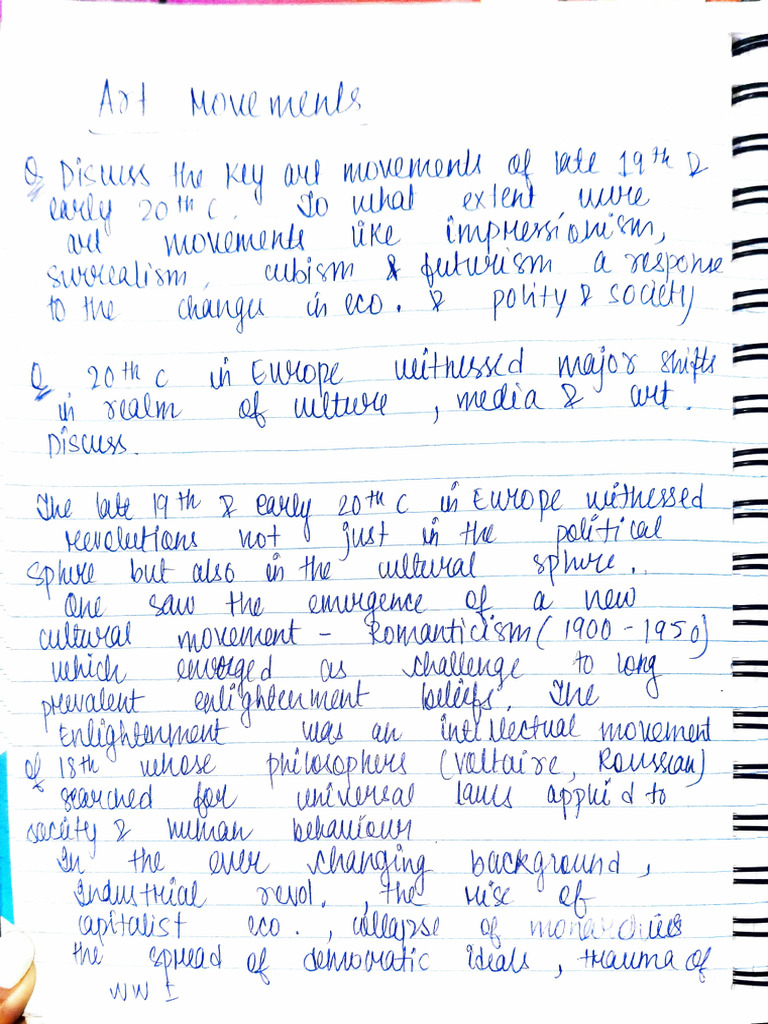 Art Movements
Q Discuss the key art movements of late 19th &
early 20th C. To what extent were
art movements like impressionism,
surrealism, cubism & futurism a response
to the changes in eco. & polity & society
Q 20th C in Europe witnessed major shifts
in realm of culture, media & art.
Discuss.
The late 19th & early 20th C in Europe witnessed
revolutions not just in the political
sphere but also in the cultural sphere.
One saw the emergence of a new
cultural movement - Romanticism (1900-1950)
which emerged as challenge to long
prevalent enlightenment beliefs. The
Enlightenment was an intellectual movement
of 18th whose philosophers (Voltaire, Rousseau)
searched for universal laws applied to
society & human behaviour
In the ever changing background,
Industrial revol., the rise of
capitalist eco., collapse of monarchies
the spread of democratic ideals, trauma of
WW I